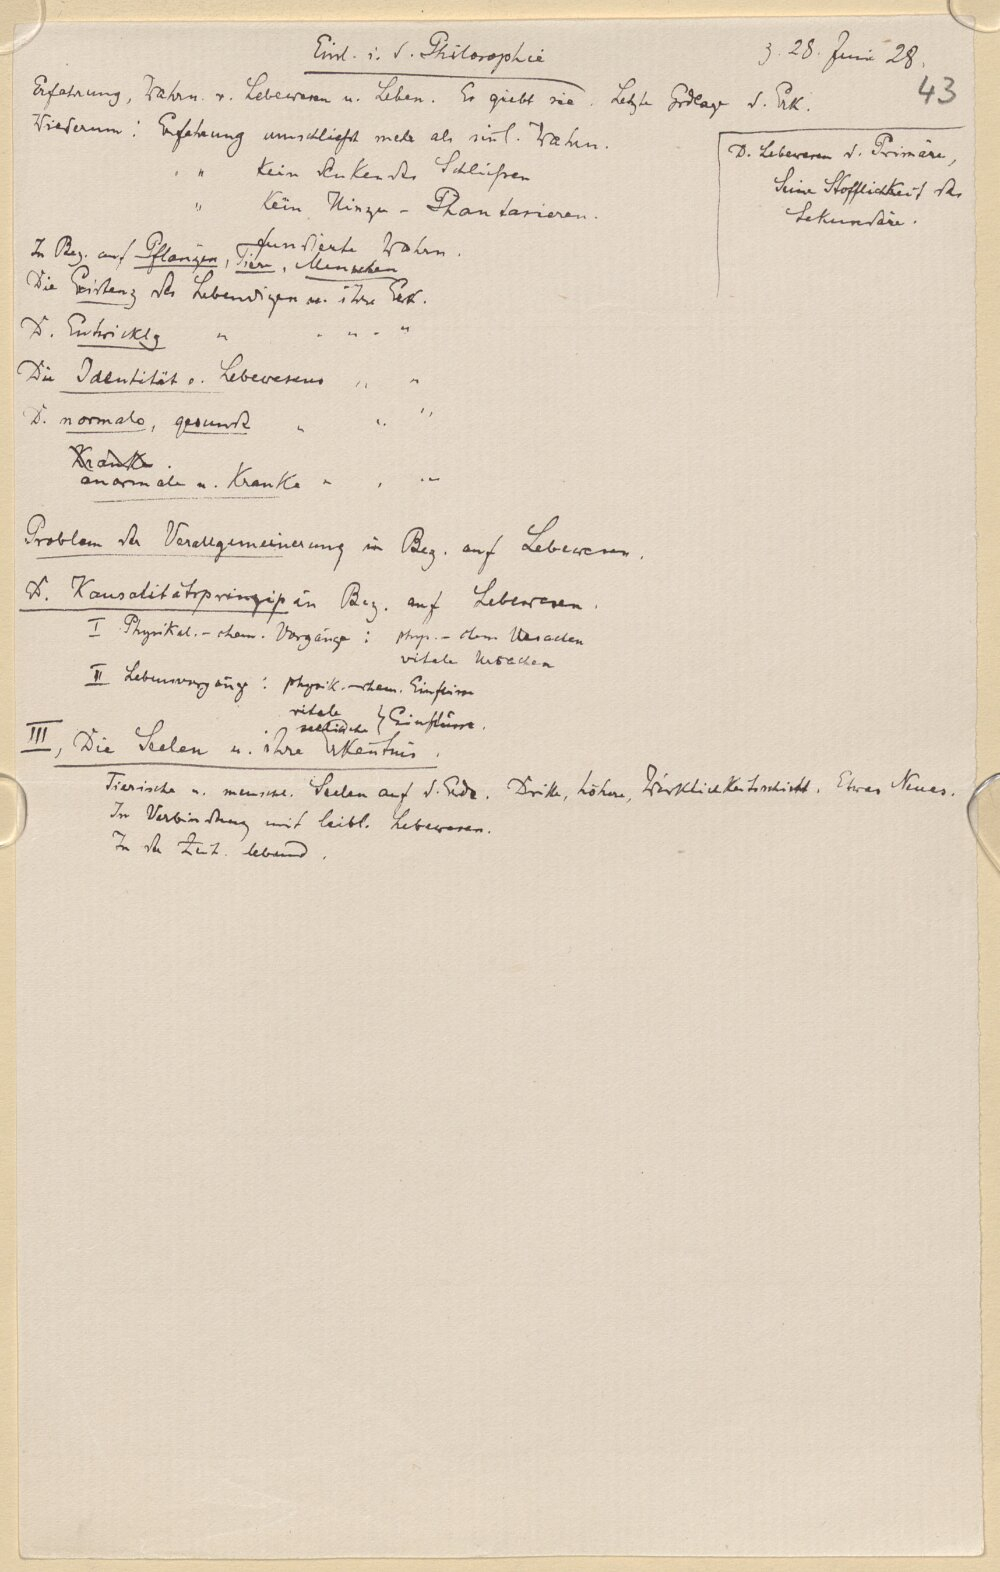 Einl. i. d. Philosophie
z. 28. Juni 28.
43
Erfahrung, Wahrn. v. Lebewesen u. Leben. Es giebt sie. Letzte Grdlage d. Erk.
Wiederum: Erfahrung umschließt mehr als sinl. Wahrn.
" " Kein denkendes Schließen
" Kein Hinzu-Phantasieren.
fundierte Wahrn.
D. Lebewesen d. Primäre,
Seine Stofflichkeit das
Sekundäre.
In Bez. auf Pflanzen, Tiere, Menschen
Die Existenz des Lebendigen u. ihre Erk.
D. Entwicklg " " " "
Die Identität d. Lebewesens " "
D. normale, gesunde " " "
Kranke.
anormale u. Kranke " " "
Problem der Verallgemeinerung in Bez. auf Lebewesen.
D. Kausalitätsprinzip in Bez. auf Lebewesen.
I Physikal.-chem. Vorgänge: phys.-chem. Ursachen
vitale Ursachen
II Lebensvorgänge: physik.-chem. Einflüsse
vitale
seelische } Einflüsse.
III, Die Seelen u. ihre Erkentnis.
Tierische u. menschl. Seelen auf d. Erde. Dritte, höhere, Wirklichkeitsschicht. Etwas Neues.
In Verbindung mit leibl. Lebewesen.
In der Zeit lebend.